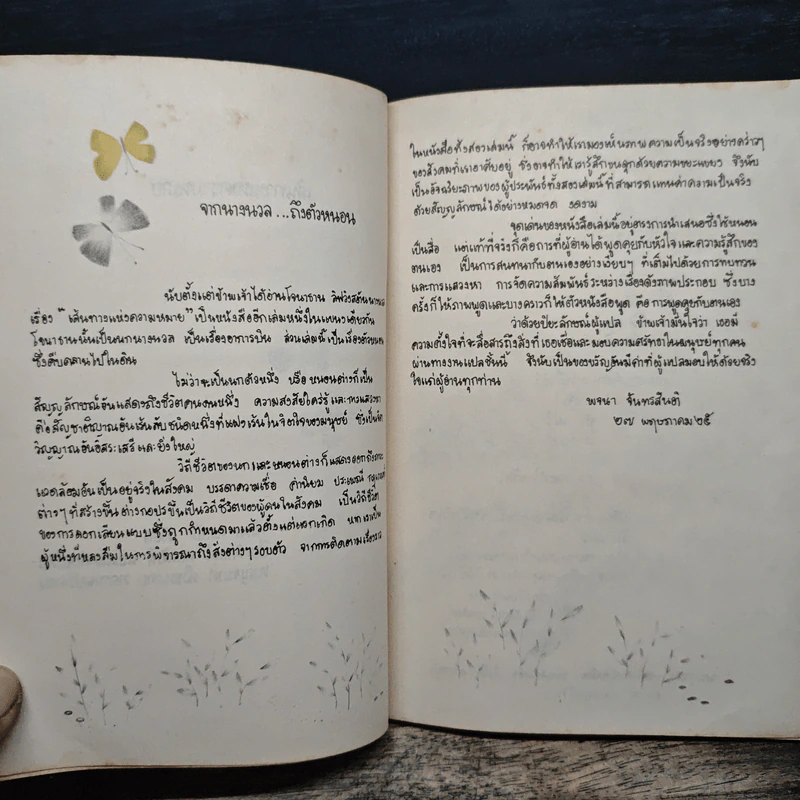 จากนางนวล...ถึงตัวหนอน
นับตั้งแต่ข้าพเจ้าได้อ่านโจนาธาน ลิฟวิงสตัน
เรื่อง "เส้นทางแห่งความหมาย" เป็นหนังสืออีกเล่มหนึ่งในแนวเดียวกัน
โจนาธานนั้นเป็นนกนางนวล เป็นเรื่องอาการบิน ส่วนเล่มนี้เป็นเรื่องตัวหนอน
ซึ่งคืบคลานไปในดิน
ไม่ว่าจะเป็นนกตัวหนึ่ง หรือ หนอนต่างก็เป็น
สัญญลักษณ์อันแสดงถึงชีวิตคนคนหนึ่ง ความสงสัยใคร่รู้และการแสวงหา
ต่อสัญชาติญาณอันเร้นลับชนิดหนึ่งที่แฝงเร้นในจิตใจของมนุษย์ ซึ่งเป็น
วิญญาณอันอิสระเสรี และยิ่งใหญ่
วิถีชีวิตของนกและหนอนต่างก็แสดงออกถึง
แวดล้อมอันเป็นอยู่จริงในสังคม บรรดาความเชื่อ ค่านิยม ประเพณี
ต่างๆที่สร้างขึ้นต่างกอปรขึ้นเป็นวิถีชีวิตของผู้คนในสังคม เป็นวิถีชีวิต
ของการลอกเลียนแบบซึ่งถูกกำหนดมาแล้วตั้งแต่แรกเกิด หากเราเป็น
ผู้หนึ่งที่หลงลืมในการพิจารณาถึงสิ่งต่างๆรอบตัว จากการติดตามเรื่องราว
ในหนังสือทั้งสองเล่มนี้ ก็อาจทำให้เรามองเห็นภาพความเป็นจริงอย่างคร่าวๆ
ของสังคมที่เราอาศัยอยู่ ซึ่งอาจทำให้เรารู้สึกขนลุกด้วยความขยะแขยง จึงนับ
เป็นอัจฉริยะภาพของผู้ประพันธ์ทั้งสองเล่มนี้ที่สามารถแทนค่าความเป็นจริง
ด้วยสัญญลักษณ์ได้อย่างหมดจด งดงาม
จุดเด่นของหนังสือเล่มนี้อยู่ตรงการนำเสนอซึ่งใช้หนอน
เป็นสื่อ แต่แท้ที่จริงก็คือการที่ผู้อ่านได้พูดคุยกับหัวใจและความรู้สึกของ
ตนเอง เป็นการสนทนากับตนเองอย่างเงียบๆ ที่เต็มไปด้วยการทบทวน
และการแสวงหา การจัดความสัมพันธ์ระหว่างเรื่องกับภาพประกอบ ซึ่งบาง
ครั้งก็ให้ภาพพูดและบางคราวก็ให้ตัวหนังสือพูด คือ การพูดคุยกับตนเอง
ว่าด้วยปิยะลักษณ์ผู้แปล ข้าพเจ้ามั่นใจว่า เธอมี
ความตั้งใจที่จะสื่อสารถึงสิ่งที่เธอเชื่อและมอบความศรัทธาในมนุษย์ทุกคน
ผ่านทางงานแปลชิ้นนี้ จึงนับเป็นของขวัญอันมีค่าที่ผู้แปลมอบให้ด้วยจริง
ใจแก่ผู้อ่านทุกท่าน
พจนา จันทรสันติ
๒๗ พฤษภาคม ๒๕